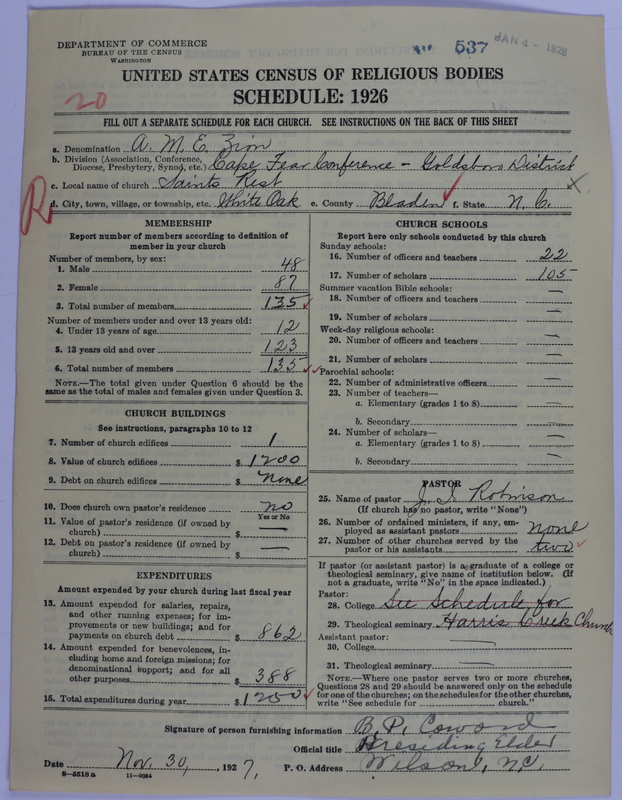 DEPARTMENT OF COMMERCE
BUREAU OF THE CENSUS
WASHINGTON
537
JAN 4 - 1928
UNITED STATES CENSUS OF RELIGIOUS BODIES
SCHEDULE: 1926
20
FILL OUT A SEPARATE SCHEDULE FOR EACH CHURCH. SEE INSTRUCTIONS ON THE BACK OF THIS SHEET
a. Denomination A. M. E. Zion
b. Division (Association, Conference, Diocese, Presbytery, Synod, etc.) Cape Fear Conference - Goldsboro District
c. Local name of church Saints Rest
d. City, town, village, or township, etc. White Oak e. County Bladen f. State N. C.
R
MEMBERSHIP
Report number of members according to definition of
member in your church
Number of members, by sex:
1. Male 48
2. Female 87
3. Total number of members 135
Number of members under and over 13 years old:
4. Under 13 years of age 12
5. 13 years old and over 123
6. Total number of members 135
NOTE.—The total given under Question 6 should be the
same as the total of males and females given under Question 3.
CHURCH BUILDINGS
See instructions, paragraphs 10 to 12
7. Number of church edifices 1
8. Value of church edifices $ 1200
9. Debt on church edifices $ None
10. Does church own pastor's residence no
Yes or No
11. Value of pastor's residence (if owned by
church) $ —
12. Debt on pastor's residence (if owned by
church) $ —
EXPENDITURES
Amount expended by your church during last fiscal year
13. Amount expended for salaries, repairs,
and other running expenses; for im-
provements or new buildings; and for
payments on church debt $ 862
14. Amount expended for benevolences, in-
cluding home and foreign missions; for
denominational support; and for all
other purposes $ 388
15. Total expenditures during year $ 1250
CHURCH SCHOOLS
Report here only schools conducted by this church
Sunday schools:
16. Number of officers and teachers 22
17. Number of scholars 105
Summer vacation Bible schools:
18. Number of officers and teachers —
19. Number of scholars —
Week-day religious schools:
20. Number of officers and teachers —
21. Number of scholars —
Parochial schools:
22. Number of administrative officers —
23. Number of teachers—
a. Elementary (grades 1 to 8) —
b. Secondary —
24. Number of scholars—
a. Elementary (grades 1 to 8) —
b. Secondary —
PASTOR
25. Name of pastor J. I. Robinson
(If church has no pastor, write "None")
26. Number of ordained ministers, if any, em-
ployed as assistant pastors none
27. Number of other churches served by the
pastor or his assistants two
If pastor (or assistant pastor) is a graduate of a college or
theological seminary, give name of institution below. (If
not a graduate, write "No" in the space indicated.)
Pastor:
28. College See Schedule for
29. Theological seminary Harris Creek Church
Assistant pastor:
30. College —
31. Theological seminary —
NOTE.—Where one pastor serves two or more churches,
Questions 28 and 29 should be answered only on the schedule
for one of the churches; on the schedules for the other churches,
write "See schedule for ______ church."
Signature of person furnishing information B. P. Coward
Official title Presiding Elder
Date Nov. 30, 1927, P. O. Address Wilson, N.C.
8—5518a 11—9064